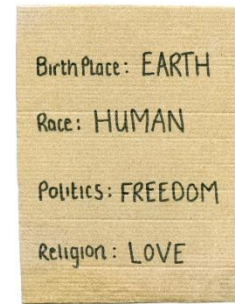 Birth Place: EARTH
Race: HUMAN
Politics: FREEDOM
Religion: LOVE